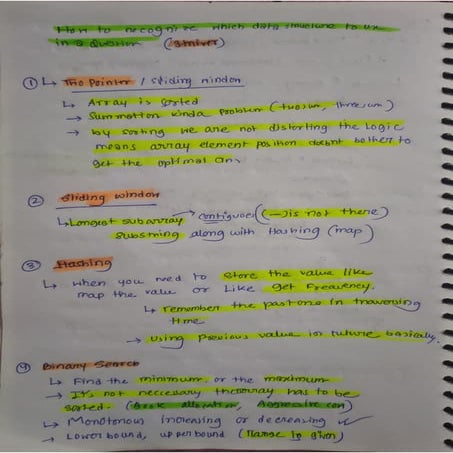 How to recognize which data structure to use
in a question (striver)
① ↳ Two Pointer / sliding window
↳ Array is sorted
→ Summation kinda problem (twosum, threesum)
→ by sorting we are not distorting the logic
means array element position doesnt bother to
get the optimal ans
② Sliding window
↳ Longest subarray → (-) is not there)
substring along with Hashing (map)
③ Hashing
↳ when you need to store the value like
map the value or like get Frequency.
↳ remember the past one in traversing
time
→ using previous value in future basically.
④ Binary Search
↳ Find the minimum, or the maximum
→ It's not necessary the array has to be
sorted. (Book allocation, Aggressive cow)
↳ Monotonous increasing or decreasing ✓
→ Lower bound, upperbound (Range is given)